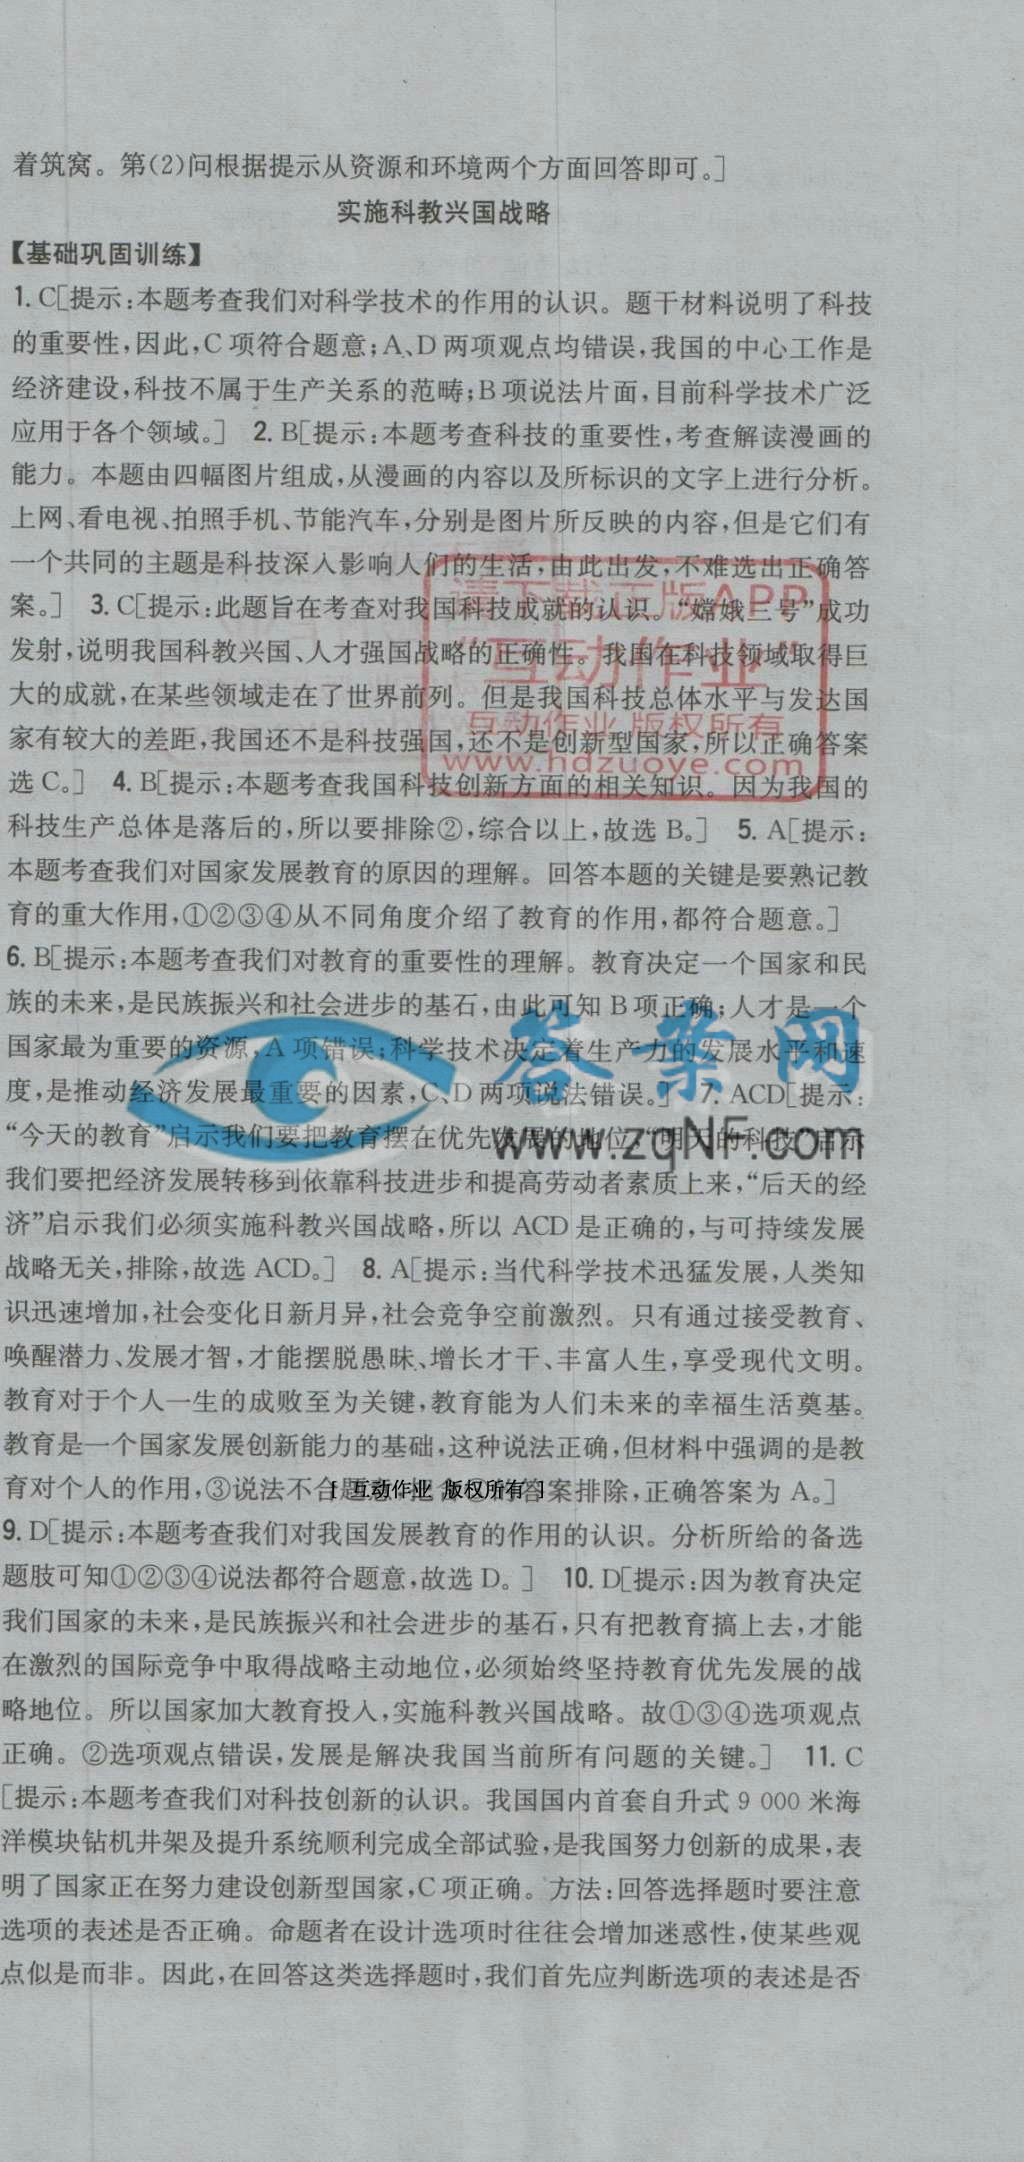 着筑窝。第(2)问根据提示从资源和环境两个方面回答即可。]
实施科教兴国战略
【基础巩固训练】
1. C[提示:本题考查我们对科学技术的作用的认识。题干材料说明了科技
的重要性,因此,C 项符合题意;A、D 两项观点均错误,我国的中心工作是
经济建设,科技不属于生产关系的范畴;B 项说法片面,目前科学技术广泛
应用于各个领域。] 2. B[提示:本题考查科技的重要性,考查解读漫画的
能力。本题由四幅图片组成,从漫画的内容以及所标识的文字上进行分析。
上网、看电视、拍照手机、节能汽车,分别是图片所反映的内容,但是它们有
一个共同的主题是科技深入影响人们的生活,由此出发,不难选出正确答
案。] 3. C[提示:此题旨在考查对我国科技成就的认识。“嫦娥三号”成功
发射,说明我国科教兴国、人才强国战略的正确性。我国在科技领域取得巨
大的成就,在某些领域走在了世界前列。但是我国科技总体水平与发达国
家有较大的差距,我国还不是科技强国,还不是创新型国家,所以正确答案
选 C。] 4. B[提示:本题考查我国科技创新方面的相关知识。因为我国的
科技生产总体是落后的,所以要排除②,综合以上,故选 B。] 5. A[提示:
本题考查我们对国家发展教育的原因的理解。回答本题的关键是要熟记教
育的重大作用,①②③④从不同角度介绍了教育的作用,都符合题意。]
6. B[提示:本题考查我们对教育的重要性的理解。教育决定一个国家和民
族的未来,是民族振兴和社会进步的基石,由此可知 B 项正确;人才是一个
国家最为重要的资源,A 项错误;科学技术决定着生产力的发展水平和速
度,是推动经济发展最重要的因素,C、D 两项说法错误。] 7. ACD[提示:
“今天的教育”启示我们要把教育摆在优先发展的地位,“明天的科技”启示
我们要把经济发展转移到依靠科技进步和提高劳动者素质上来,“后天的经
济”启示我们必须实施科教兴国战略,所以 ACD 是正确的,与可持续发展
战略无关,排除,故选 ACD。] 8. A[提示:当代科学技术迅猛发展,人类知
识迅速增加,社会变化日新月异,社会竞争空前激烈。只有通过接受教育、
唤醒潜力、发展才智,才能摆脱愚昧、增长才干、丰富人生,享受现代文明。
教育对于个人一生的成败至为关键,教育能为人们未来的幸福生活奠基。
教育是一个国家发展创新能力的基础,这种说法正确,但材料中强调的是教
育对个人的作用,③说法不合题意,把含③的答案排除,正确答案为 A。]
9. D[提示:本题考查我们对我国发展教育的作用的认识。分析所给的备选
题肢可知①②③④说法都符合题意,故选 D。] 10. D[提示:因为教育决定
我们国家的未来,是民族振兴和社会进步的基石,只有把教育搞上去,才能
在激烈的国际竞争中取得战略主动地位,必须始终坚持教育优先发展的战
略地位。所以国家加大教育投入,实施科教兴国战略。故①③④选项观点
正确。②选项观点错误,发展是解决我国当前所有问题的关键。] 11. C
[提示:本题考查我们对科技创新的认识。我国国内首套自升式 9 000 米海
洋模块钻机井架及提升系统顺利完成全部试验,是我国努力创新的成果,表
明了国家正在努力建设创新型国家,C 项正确。方法:回答选择题时要注意
选项的表述是否正确。命题者在设计选项时往往会增加迷惑性,使某些观
点似是而非。因此,在回答这类选择题时,我们首先应判断选项的表述是否
请下载正版APP
“互动作业”
互动作业 版权所有
www.hdzuoye.com
答案网
www.zqNF.com
[ 互动作业 版权所有 ]